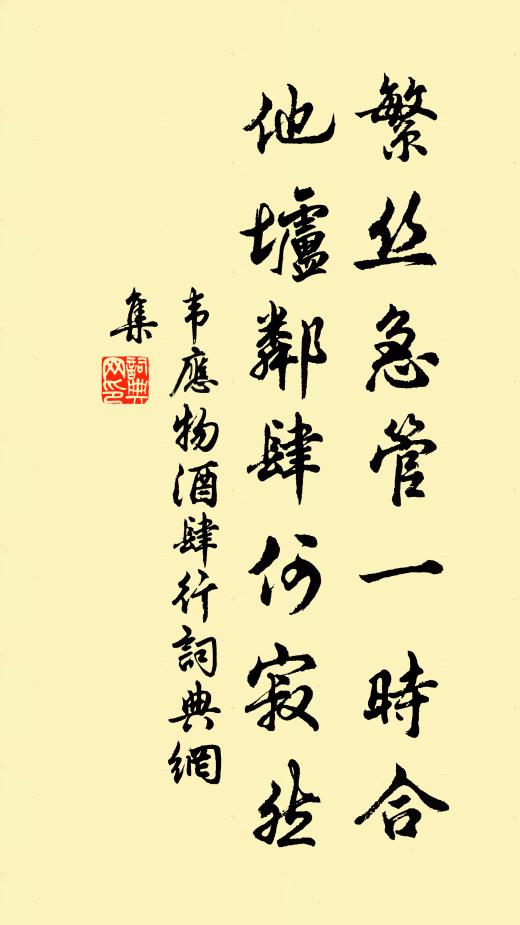 繁丝急管一時合
他壚鄰肆何寂然
韦應物酒肆行詞典網
集
詞典网印